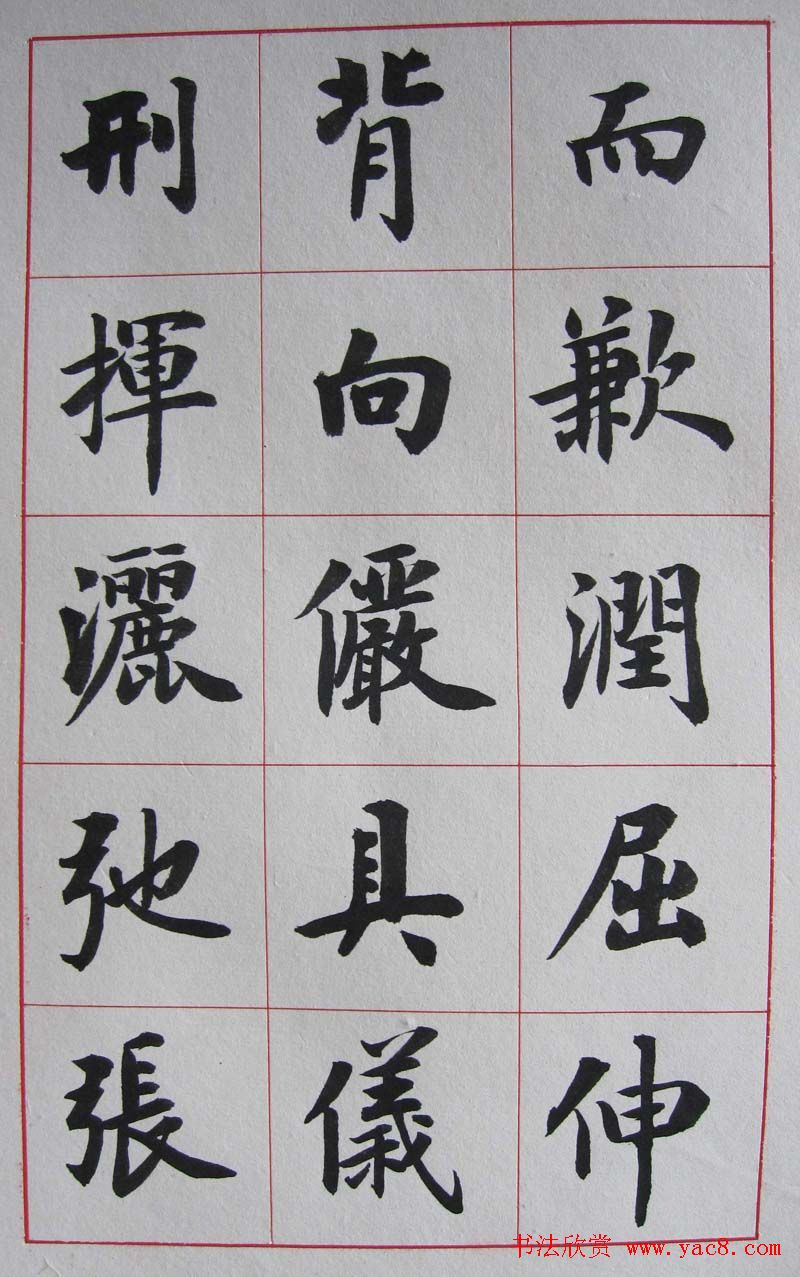 而歉潤屈伸
背向儼具儀
刑揮灑弛張
书法欣赏 www.yac8.com